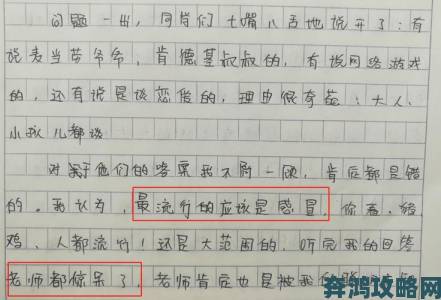 问题一出，同学们七嘴八舌地说开了：有
说麦当劳爷爷，肯德基叔叔的，有说网络游戏
的，还有说是谈恋爱的，理由很奇葩：大人、
小孩儿都谈
对于他们的答案我不屑一顾，肯定都是错
的。我认为，最流行的应该是感冒，你看，给
鸡、人都流行！还是大范围的，听完我的回答
老师都惊呆了，老师肯定也是被我的
奔鸿攻略网